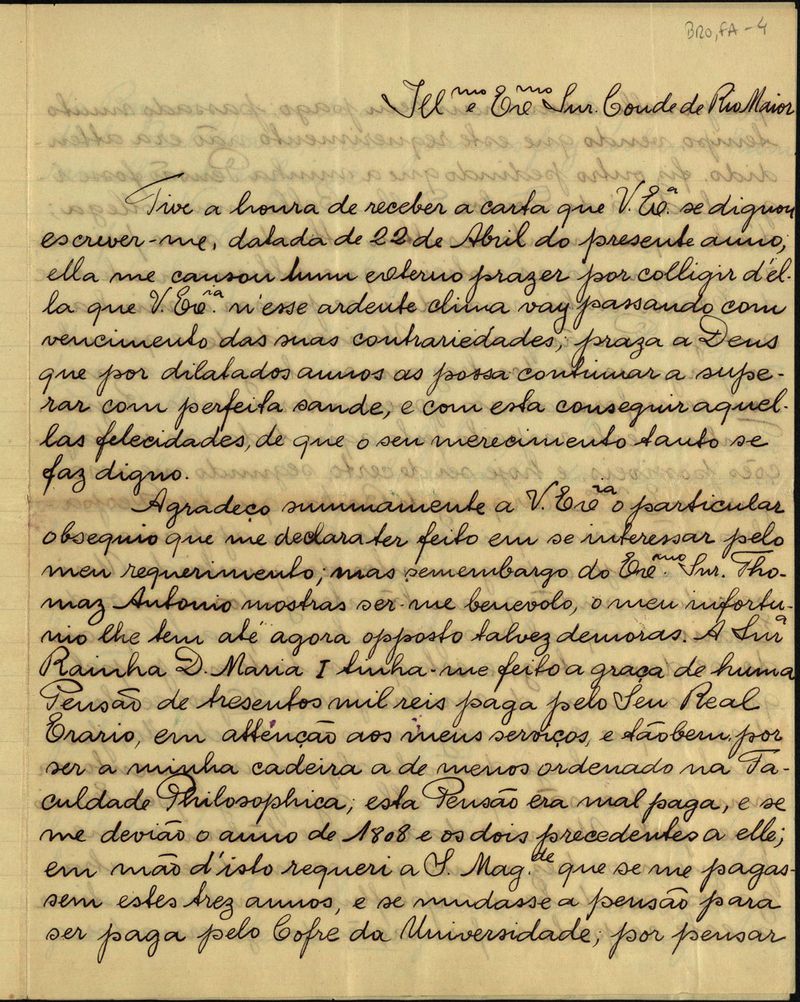 BRO,FA-4
Ill.mo e Exe.mo Snr. Conde de Rio Maior
Tive a honra de receber a carta que V. Exe.a se dignou
escrever-me, datada de 22 de Abril do presente anno;
ella me causou hum externo prazer por colligir d'el-
la que V. Exe.cia n'esse ardente clima vay passando com
vencimento das suas contrariedades; praza a Deus
que por dilatados annos as possa continuar a supe-
rar com perfeita saude, e com esta conseguir aquel-
las felecidades, de que o seu merecimento tanto se
faz digno.
Agradeço summamente a V. Exe.cia o particular
obsequio que me declara ter feito em se interessar pelo
meu requerimento; mas sem embargo do Exe.mo Snr. Tho-
maz Antonio mostras sêr-me benevolo, o meu infortu-
nio lhe tem até agora opposto talvez demoras. A Snr.a
Rainha D. Maria I tinha-me feito a graça de huma
Pensão de tresentos mil reis paga pelo Seu Real
Erario, em attenção aos meus serviços, e tãobem por
ser a minha cadeira a de menos ordenado na Fa-
culdade Philosophica; esta Pensão era mal paga, e se
me devião o anno de 1808 e os dois precedentes a elle;
em mão d'isto requeri a S. Mag.de que se me pagas-
sem estes trez annos, e se mudasse a pensão para
ser paga pelo Cofre da Universidade; por pensar